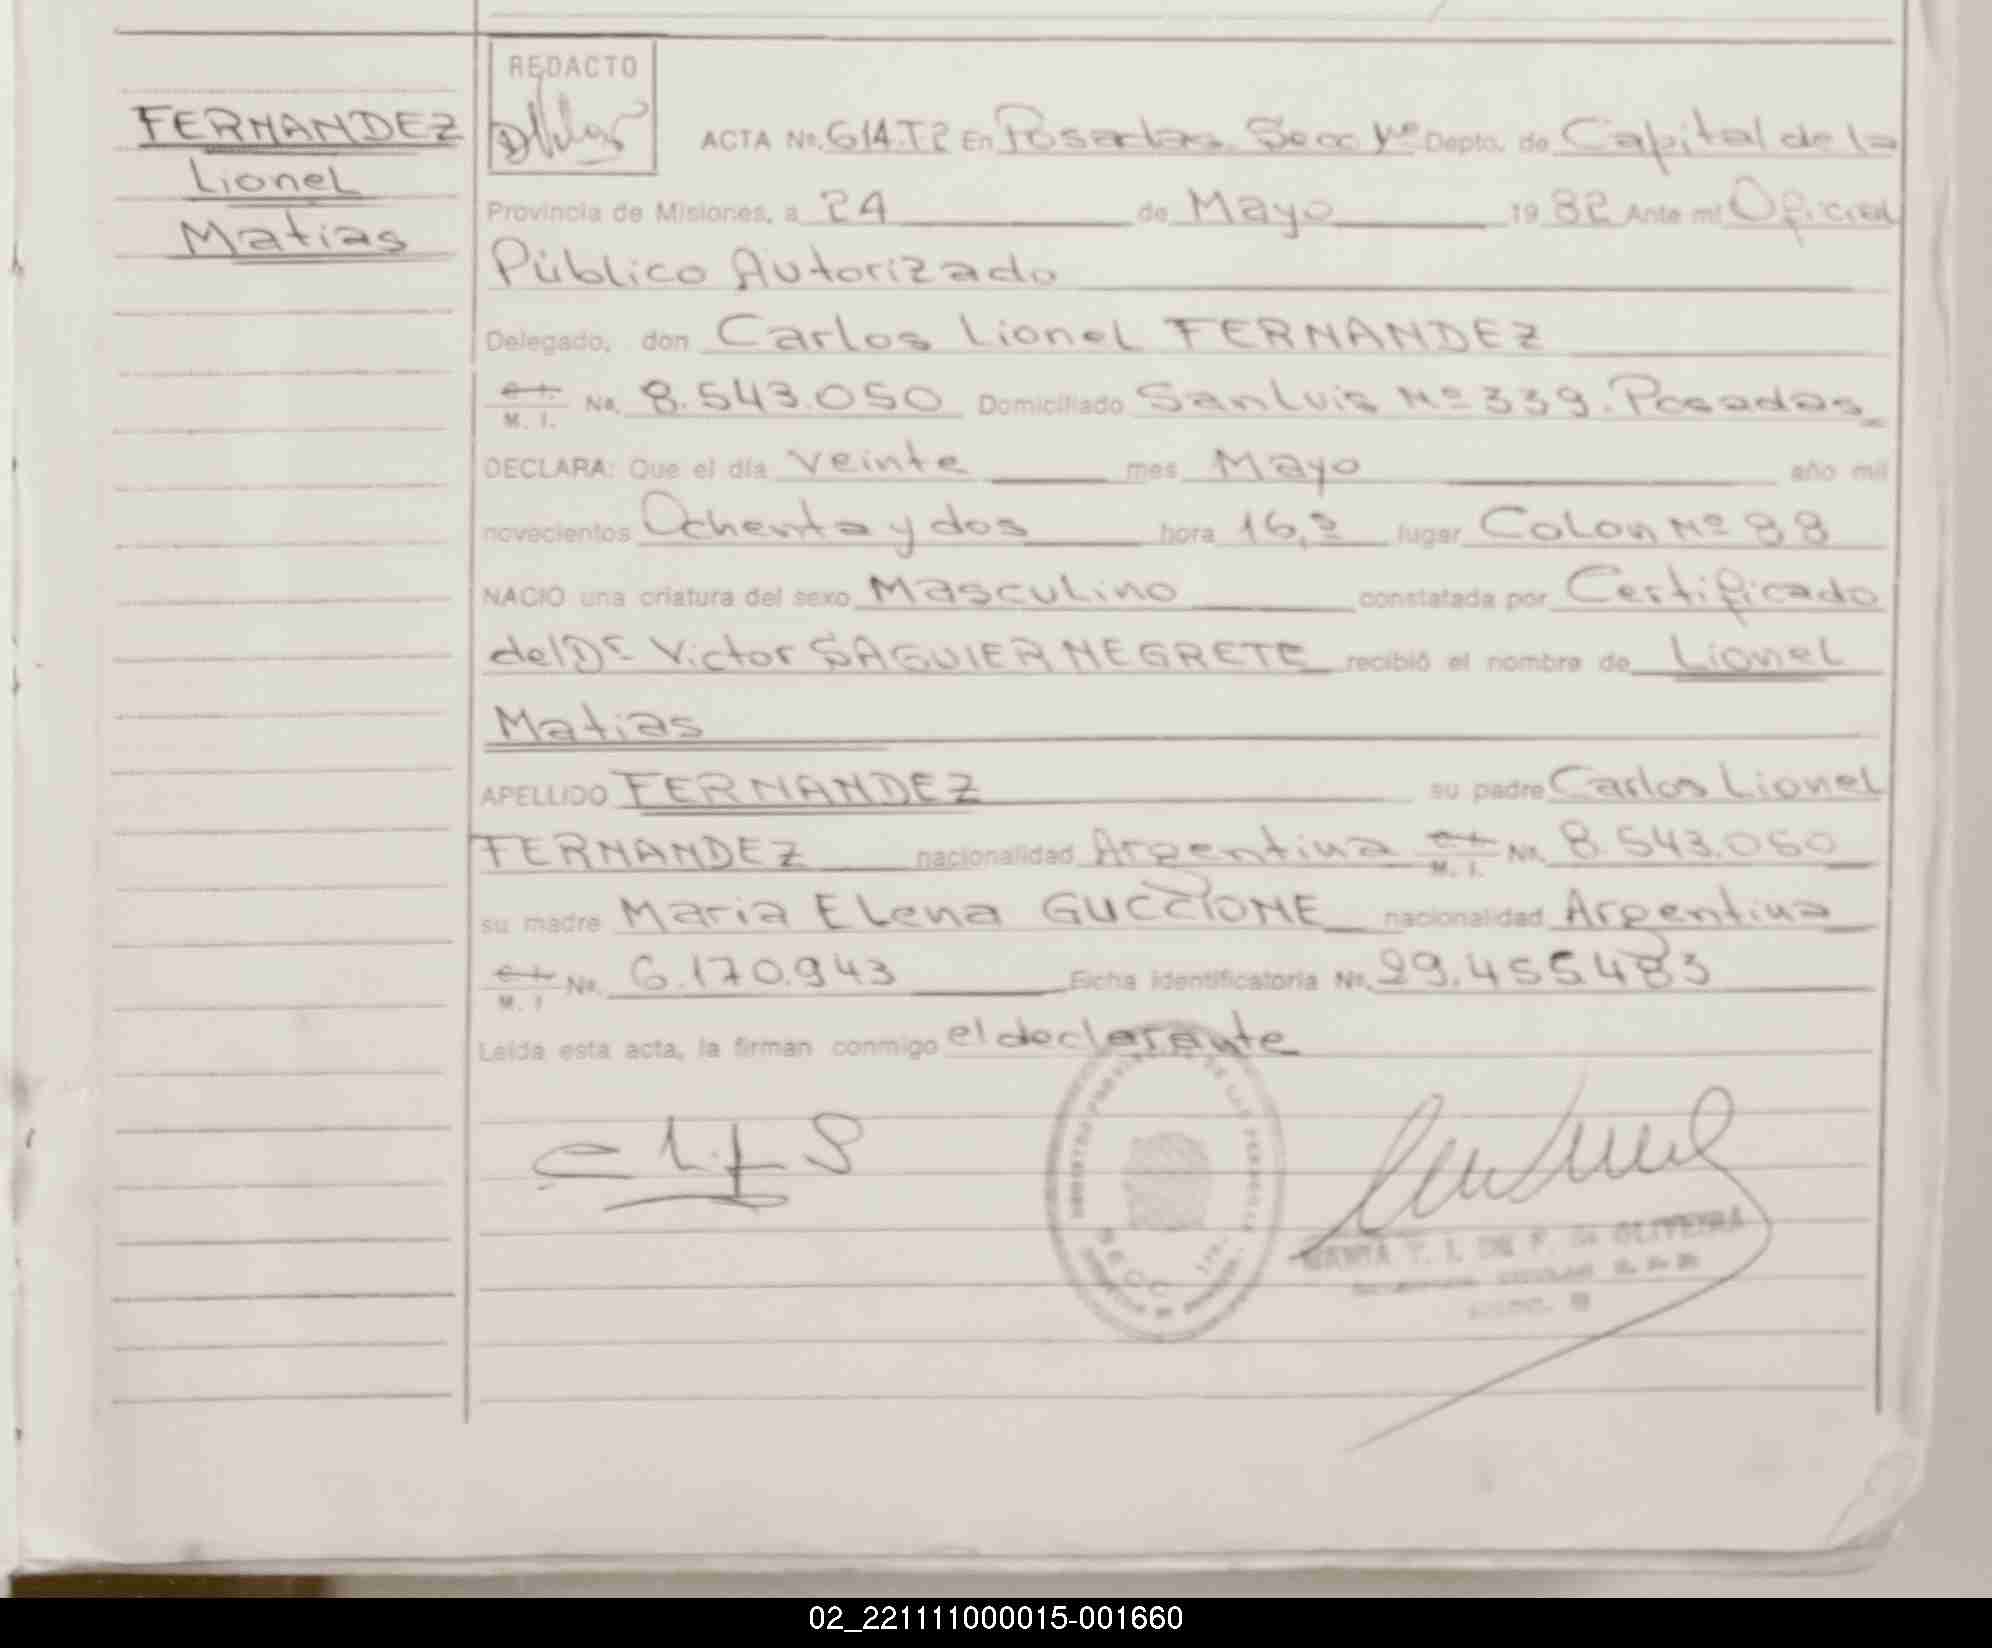 REDACTO
FERNANDEZ
Lionel
Matias
ACTA No. 614.T2 En Posadas. Secc 1ra Depto. de Capital de la
Provincia de Misiones, a 24 de Mayo 1982 Ante mi Oficial
Público Autorizado
Delegado, don Carlos Lionel FERNANDEZ
M. I. No. 8.543.050 Domiciliado San Luis Nº 339. Posadas
DECLARA: Que el día veinte mes Mayo año mil
novecientos Ochenta y dos hora 16,º lugar Colon Nº 88
NACIO una criatura del sexo Masculino constatada por Certificado
del Dr Victor SAGUIER NEGRETE recibió el nombre de Lionel
Matias
APELLIDO FERNANDEZ su padre Carlos Lionel
FERNANDEZ nacionalidad Argentina M. I. No. 8.543.050
su madre Maria Elena GUCCIONE nacionalidad Argentina
M. I No. 6.170.943 Ficha identificatoria No. 29.455483
Leída esta acta, la firman conmigo el declarante
DE LAS PERSONAS
SECC. 1ra.
T. I. DE F. DE OLIVEIRA
02_221111000015-001660